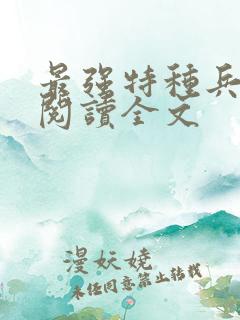 最强特種兵
閱讀全文
漫妖嬈
未经同意禁止转载